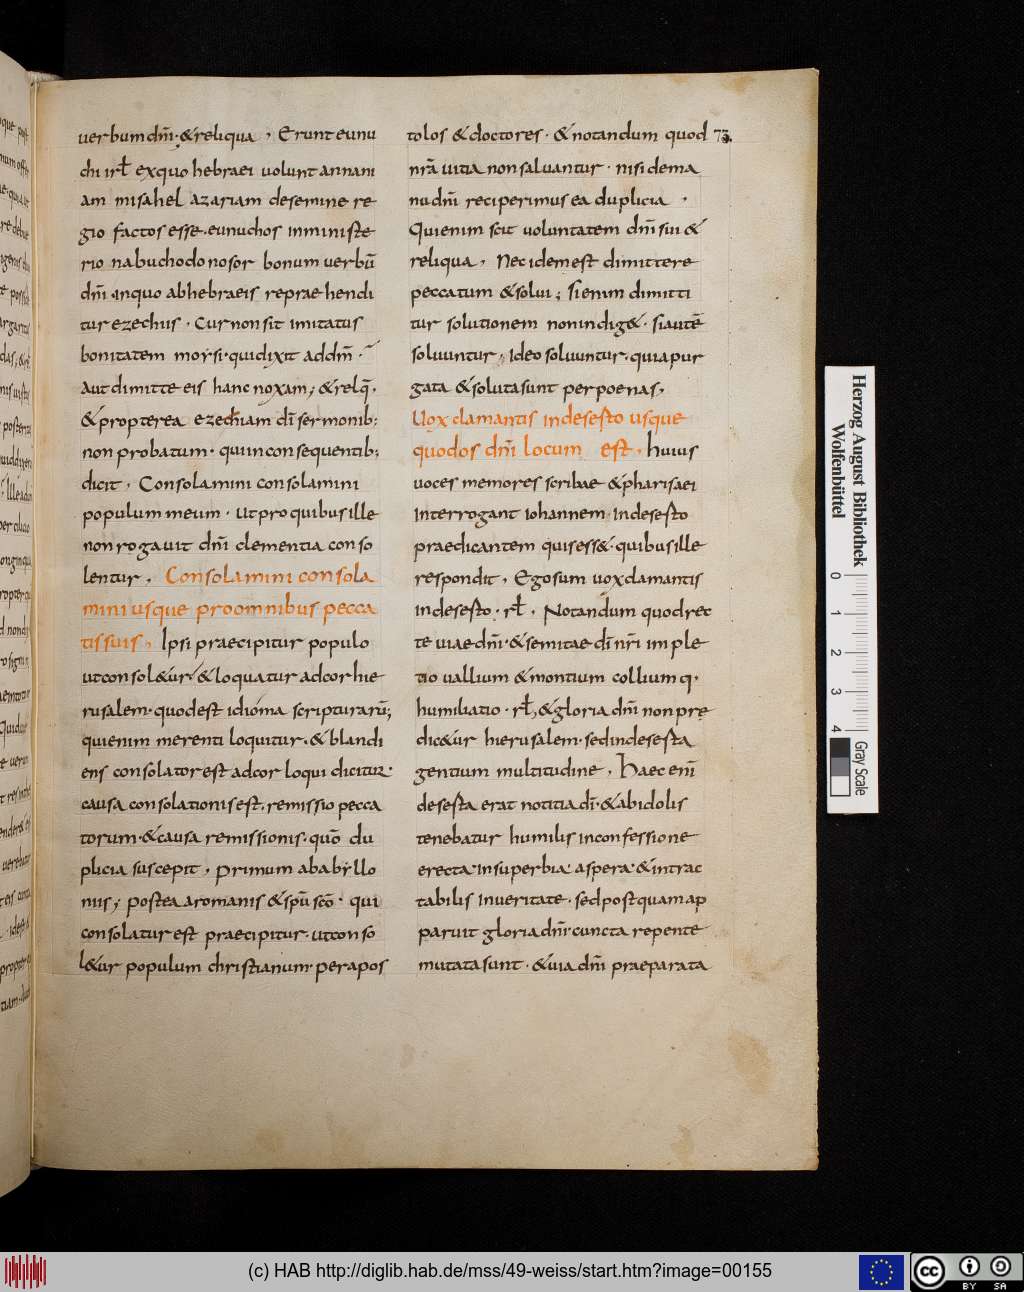 uerbum dn̄i · & reliqua , Erunt eunu
chi irł ex quo hebraei uolunt annani
am misahel azariam desemine re
gio factos esse · eunuchos inministe
rio nabuchodonosor bonum uerbū
dn̄i · inquo abhebraeis reprae hendi
tur ezechiis · Cur non sit imitatus
bonitatem moysi · qui dixit ad dn̄m ·
Aut dimitte eis hanc noxam ; & relq̄ ·
& propterea ezechiam dī sermonib;
non probatum · qui inconsequentib;
dicit , Consolamini consolamini
populum meum · ut pro quibus ille
non rogauit dn̄i clementia conso
lentur , Consolamini consola
mini usque pro omnibus pecca
tis suis , Ipsi praecipitur populo
ut consol&ur / & loquatur ad cor hie
rusalem · quod est idióma scripturarū;
qui enim merenti loquitur · & blandi
ens consolator est ad cor loqui dicitur ·
causa consolationis est , remissio pecca
torum · & causa remissionis · quō du
plicia suscepit , primum a babyllo
niis ; postea a romanis & sp̄u scō · qui
consolatur est praecipitur · ut conso
l&ur populum christianum · per apos
tolos & doctores · & notandum quod 73.
nr̄a uitia non saluantur · nisi de ma
nu dn̄i receperimus ea duplicia ·
Qui enim scit uoluntatem dn̄i sui &
reliqua , Nec idem est dimittere
peccatum & solui ; si enim dimitti
tur solutionem non indig& · si autē
soluuntur , Ideo soluuntur · quia pur
gata & soluta sunt per poenas ,
Uox clamantis in deserto usque
quod os dn̄i locum est , huius
uoces memores scribae & pharisaei
interrogant iohannem in deserto
praedicantem quis ess& · quibus ille
respondit , Ego sum uox clamantis
in deserto · rł , Notandum quod rec
te uiae dn̄i · & semitae dī nr̄i imple
tio uallium & montium collium q·
humiliatio · rł , & gloria dn̄i non pre
dic&ur hierusalem · sed in deserta
gentium multitudine , haec eni
deserta erat notitia dī · & ab idolis
tenebatur humilis in confessione
erecta in superbia · aspera · & intrac
tabilis in ueritate · sed postquam ap
paruit gloria dn̄i · cuncta repente
mutata sunt · & uia dn̄i praeparata
Herzog August Bibliothek
Wolfenbüttel
0 1 2 3 4
Gray Scale
(c) HAB http://diglib.hab.de/mss/49-weiss/start.htm?image=00155
cc BY SA